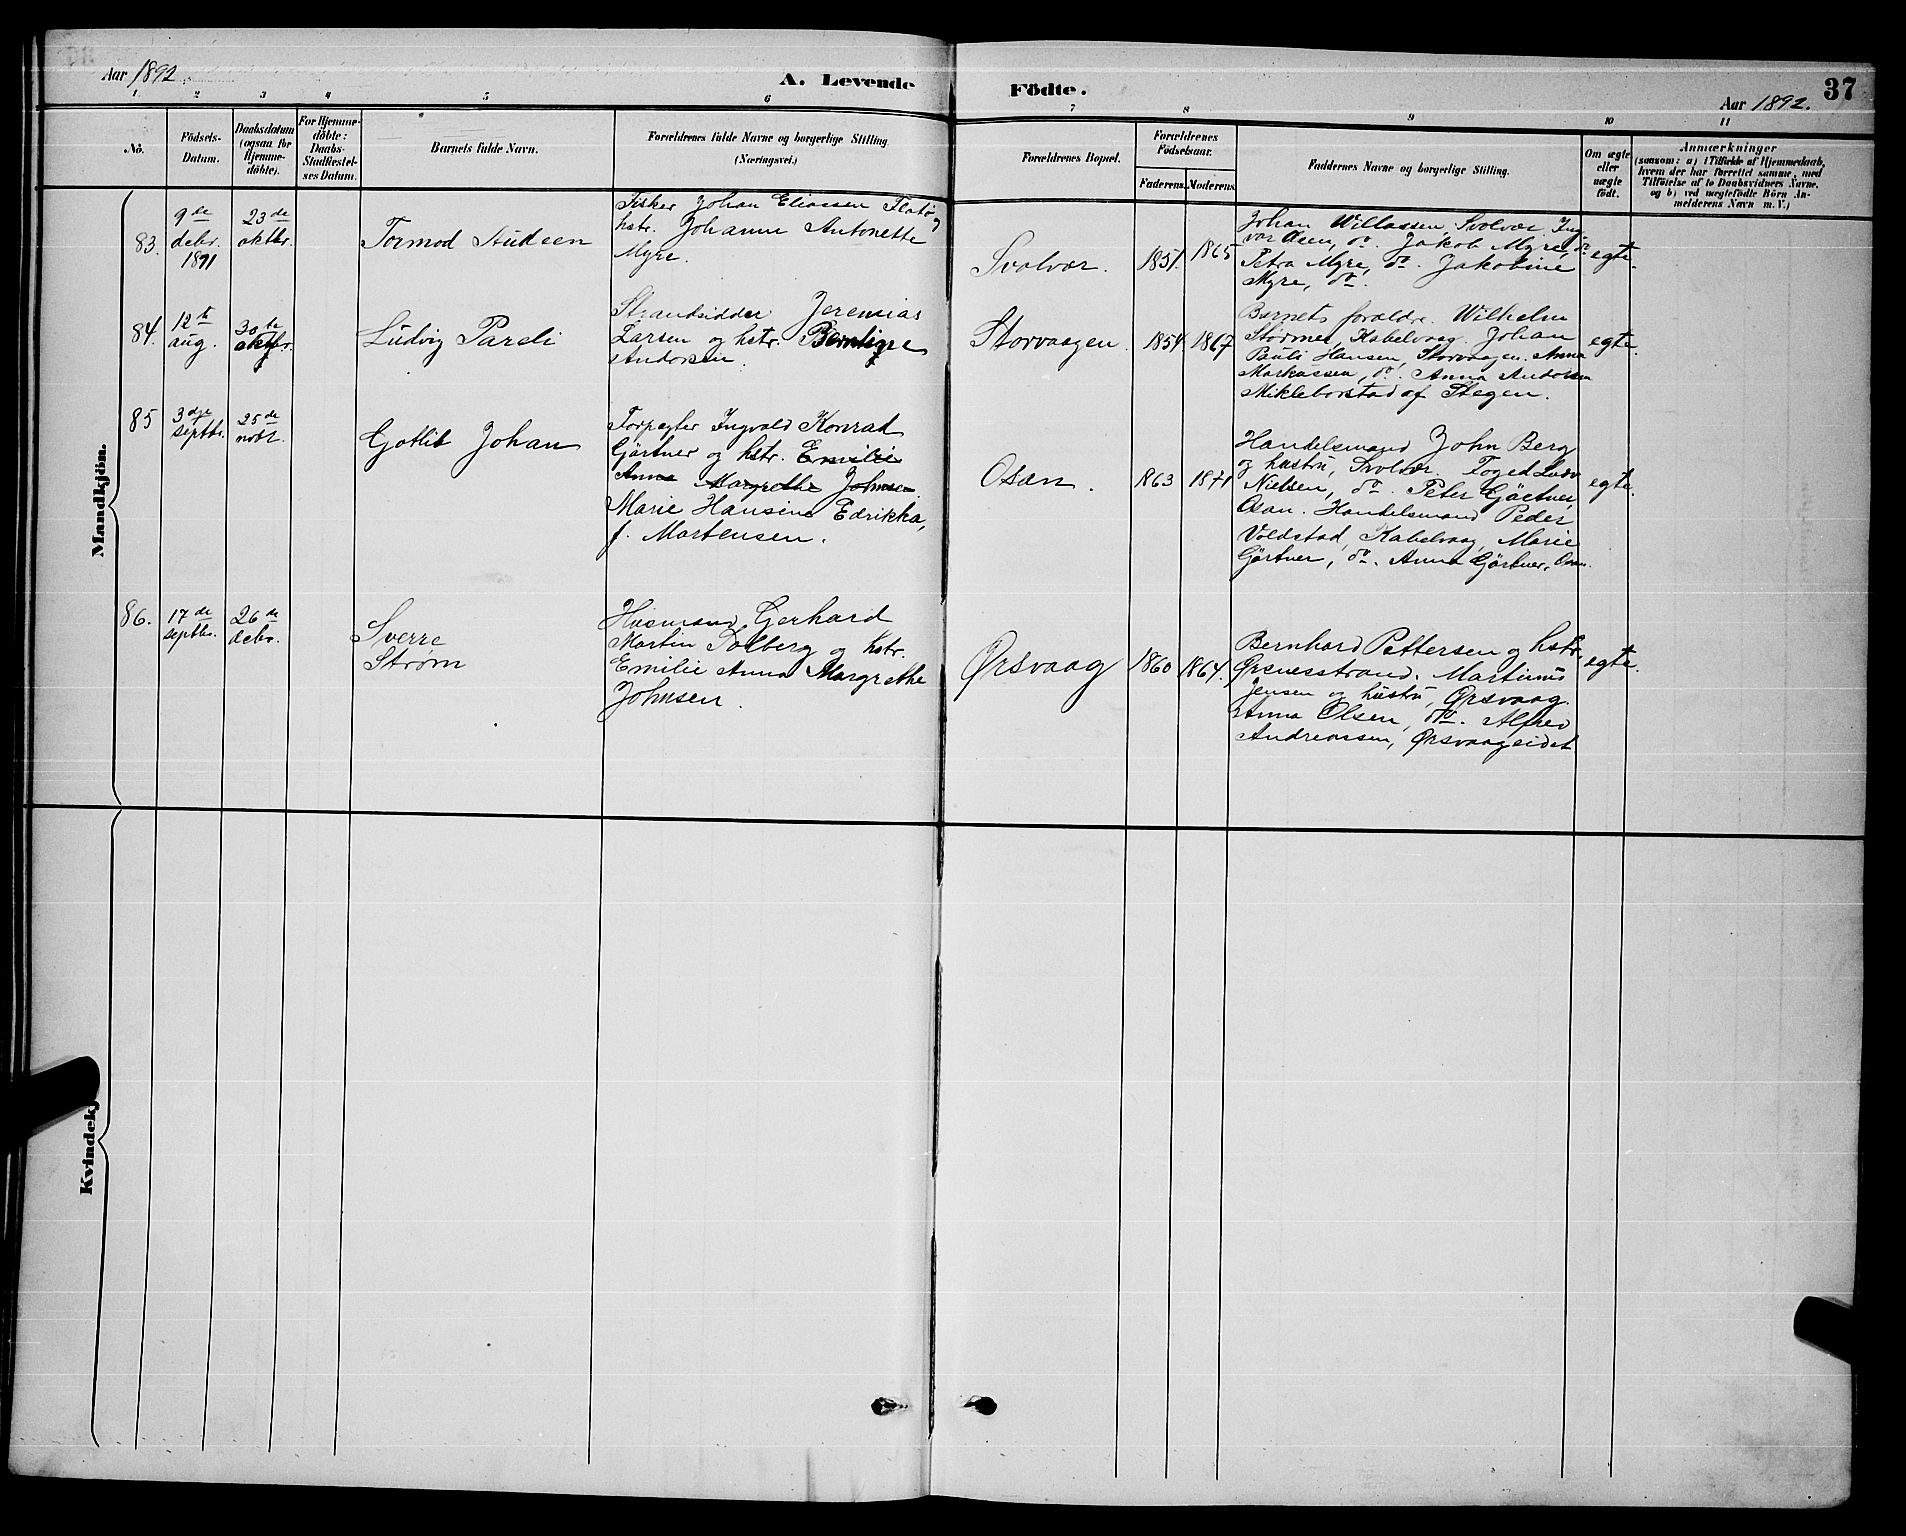 Aar 1892
A. Levende
Födte.
Aar 1892.
37
1 2 3 4 5 6 7 8 9 10 11
No.
Födsels-
Datum.
Daabsdatum
(ogsaa for
Hjemme-
döbte).
For Hjemme-
döbte:
Daabs-
Stadfæstel-
ses Datum.
Barnets fulde Navn.
Forældrenes fulde Navne og borgerlige Stilling
(Næringsvei.)
Forældrenes Bopæl.
Forældrenes
Födselsaar.
Faderens. Moderens.
Faddernes Navne og borgerlige Stilling.
Om ægte
eller
uægte
födt.
Anmærkninger
(saasom: a) i Tilfælde af Hjemmedaab,
hvem der har forrettet samme, med
Tilföielse af to Daabsvidners Navne,
og b) ved uægtefödte Börn An-
melderens Navn m. V.)
Mandkjön.
83.
9de
debr.
1891
23de
oktbr.
Tormod
Fisker Johan Eliassen Flatø og
hstr. Johanne Antonette
Myre.
Svolvær.
1851. 1865
Johan Willassen, Svolvær. Ing-
var Osen, do. Jakob Myre, do
Petra Myre, do. Jakobine
Myre, do.
egte.
84.
12te
aug.
30te
oktbr.
Ludvig Pareli
Strandsidder Jeremias
Larsen og hstr. Berntine
Andorsen.
Storvaagen.
1854 1867
Barnets forældre. Wilhelm
Størmer, Kabelvaag. Johan
Pauli Hansen, Storvaagen. Anna
Markussen, do. Anna Andorsen
Mikleborstad af Stegen.
egte.
85
3dje
septbr.
25de
novbr.
Gotlib Johan
Forpagter Ingvald Konrad
Gärtner og hstr. Emilie
Anna Margrethe Johnsen
Marie Hansine Edrikka,
f. Martensen.
Osan.
1863 1871
Handelsmand John Berg
og hustru, Svolvær. Foged Ludv
Nielsen, do. Peter Gärtner,
Osan. Handelsmand Peder
Voldstad, Kabelvaag, Marie
Gärtner, do. Anna Gärtner, Osan.
egte.
86.
17de
septbr.
26de
debr.
Sverre
Strøm
Husmand Gerhard
Martin Solberg og hstr.
Emilie Anna Margrethe
Johnsen.
Ørsvaag
1860 1864.
Bernhard Pettersen og hstr.
Ørsnesstrand. Martinus
Jensen og hustru, Ørsvaag.
Anna Olsen, do. Alfred
Andreassen, Ørsvaageidet
egte.
Kvindekj